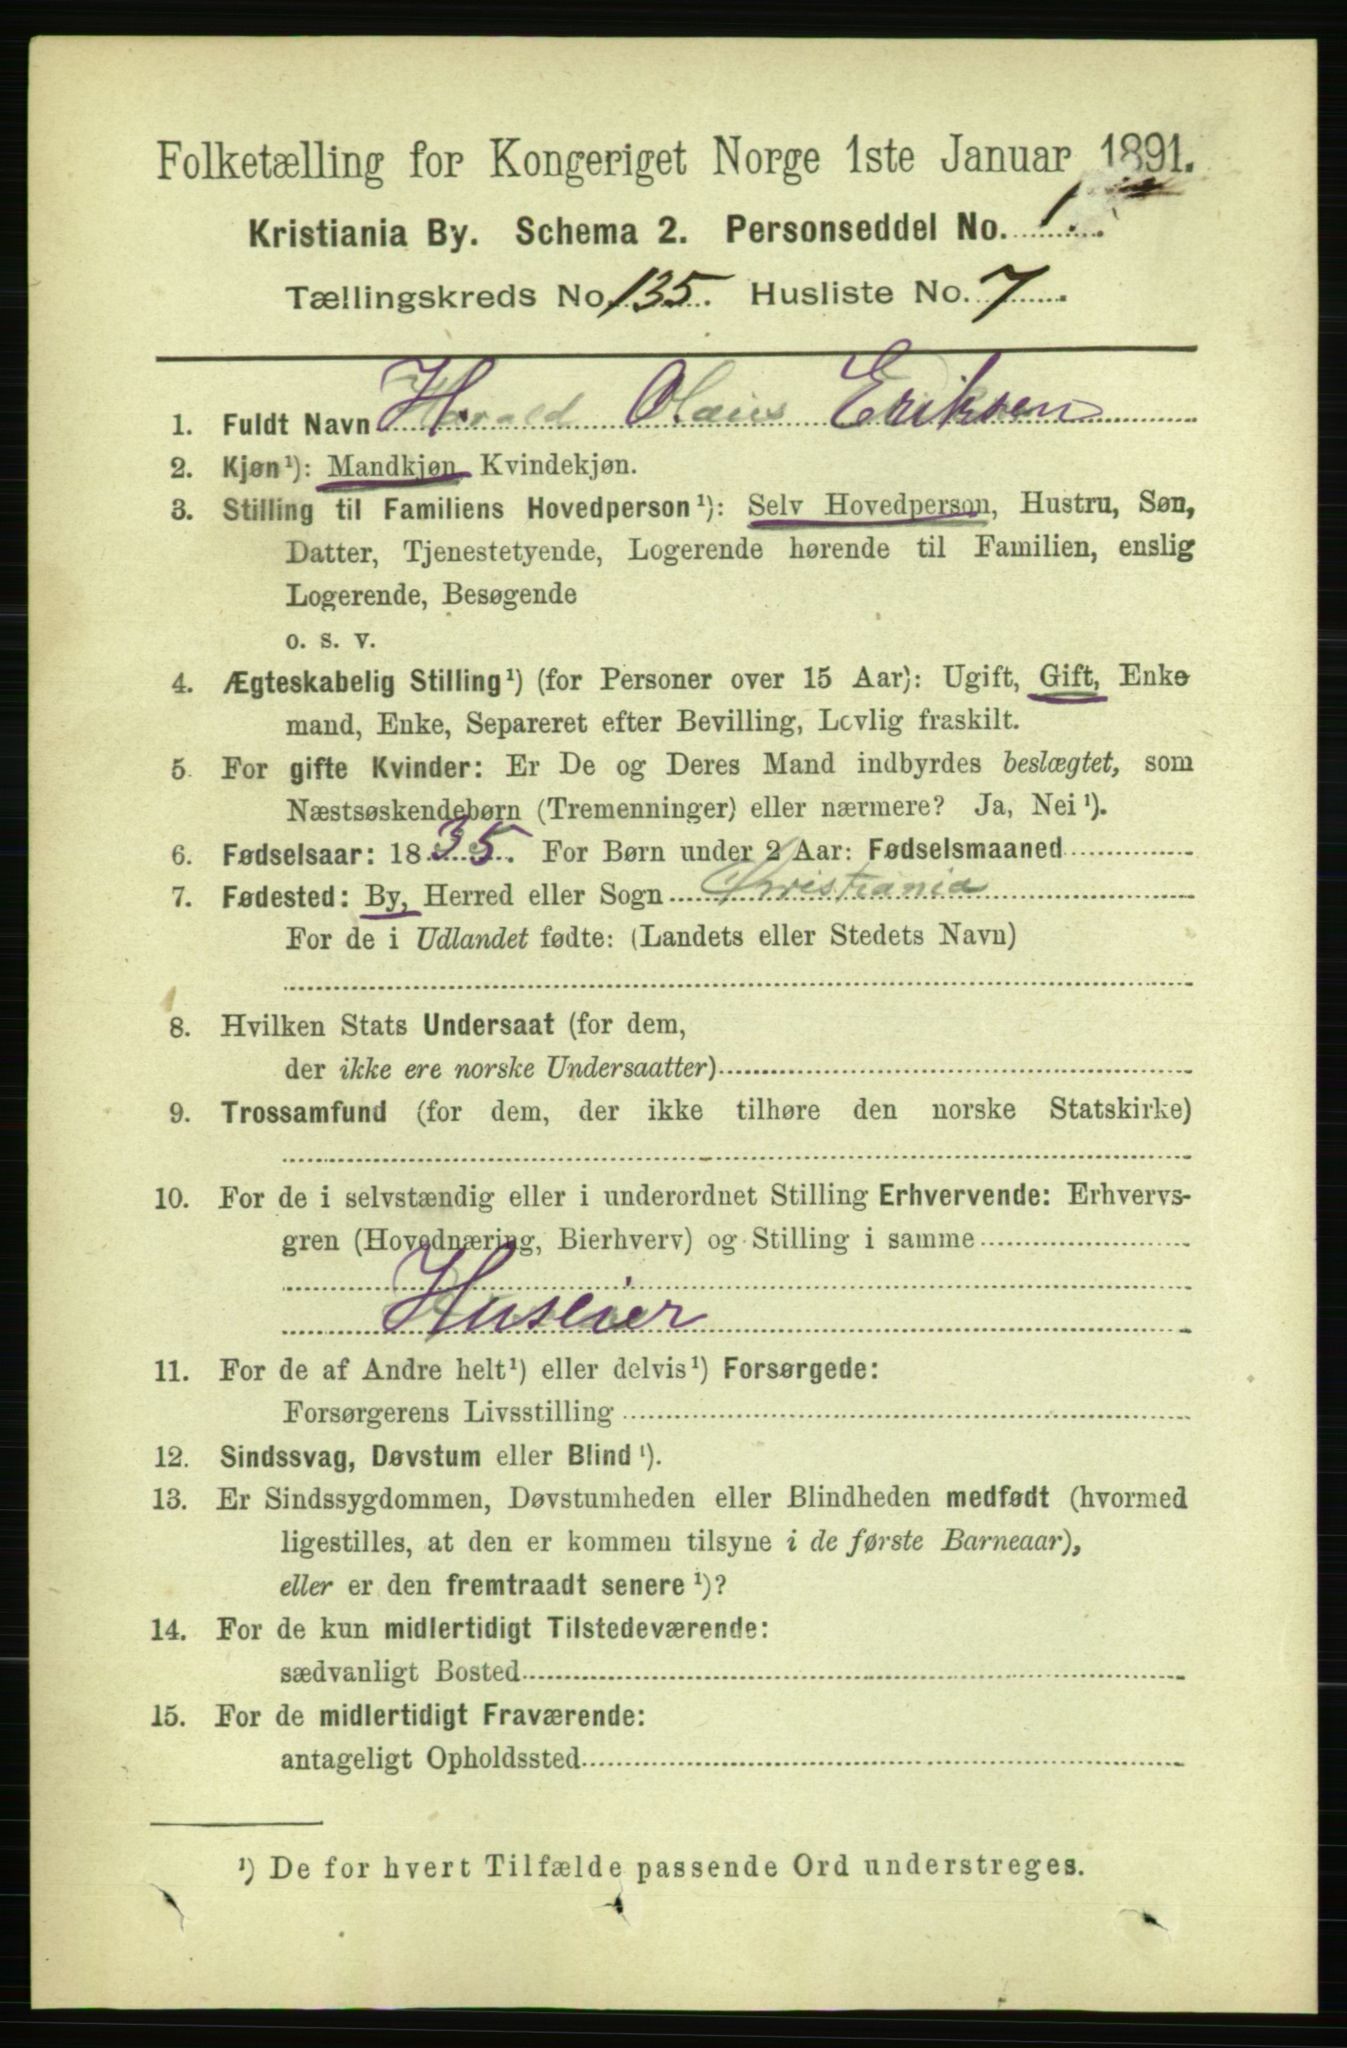 Folketælling for Kongeriget Norge 1ste Januar 1891.
Kristiania By. Schema 2. Personseddel No. 1.
Tællingskreds No. 135. Husliste No. 7.
1. Fuldt Navn Harald Olaus Eriksen
2. Kjøn¹): Mandkjøn, Kvindekjøn.
3. Stilling til Familiens Hovedperson¹): Selv Hovedperson, Hustru, Søn,
Datter, Tjenestetyende, Logerende hørende til Familien, enslig
Logerende, Besøgende
o. s. v.
4. Ægteskabelig Stilling¹) (for Personer over 15 Aar): Ugift, Gift, Enke
mand, Enke, Separeret efter Bevilling, Lovlig fraskilt.
5. For gifte Kvinder: Er De og Deres Mand indbyrdes beslægtet, som
Næstsøskendebørn (Tremenninger) eller nærmere? Ja, Nei¹).
6. Fødselsaar: 1835. For Børn under 2 Aar: Fødselsmaaned
7. Fødested: By, Herred eller Sogn Kristiania
For de i Udlandet fødte: (Landets eller Stedets Navn)
8. Hvilken Stats Undersaat (for dem,
der ikke ere norske Undersaatter)
9. Trossamfund (for dem, der ikke tilhøre den norske Statskirke)
10. For de i selvstændig eller i underordnet Stilling Erhvervende: Erhvervs-
gren (Hovednæring, Bierhverv) og Stilling i samme
Huseier
11. For de af Andre helt¹) eller delvis¹) Forsørgede:
Forsørgerens Livsstilling
12. Sindssvag, Døvstum eller Blind¹).
13. Er Sindssygdommen, Døvstumheden eller Blindheden medfødt (hvormed
ligestilles, at den er kommen tilsyne i de første Barneaar),
eller er den fremtraadt senere¹)?
14. For de kun midlertidigt Tilstedeværende:
sædvanligt Bosted
15. For de midlertidigt Fraværende:
antageligt Opholdssted
¹) De for hvert Tilfælde passende Ord understreges.